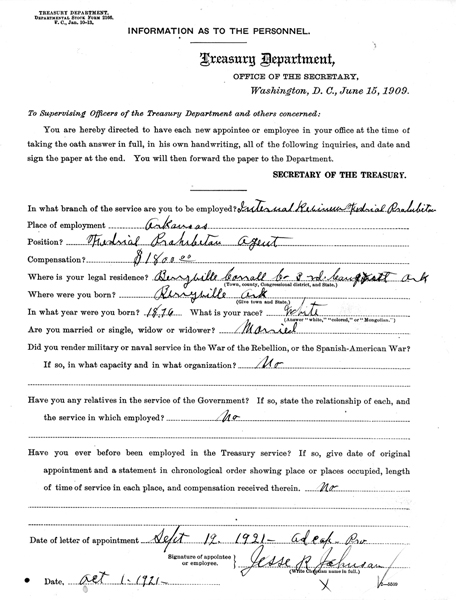 TREASURY DEPARTMENT,
DEPARTMENTAL STOCK FORM 2105.
F. C., Jan. 10-13.
INFORMATION AS TO THE PERSONNEL.
Treasury Department,
OFFICE OF THE SECRETARY,
Washington, D. C., June 15, 1909.
To Supervising Officers of the Treasury Department and others concerned:
You are hereby directed to have each new appointee or employee in your office at the time of
taking the oath answer in full, in his own handwriting, all of the following inquiries, and date and
sign the paper at the end. You will then forward the paper to the Department.
SECRETARY OF THE TREASURY.
In what branch of the service are you to be employed? Internal Prohibiton
Place of employment Arkansas
Position? Prohibiton Agent
Compensation? $1800 00
Where is your legal residence? Berryville Co 3rd Ark
(Town, county, Congressional district, and State.)
Where were you born? Berryville Ark
(Give town and State.)
In what year were you born? 1876 What is your race? White
(Answer "white," "colored," or "Mongolian.")
Are you married or single, widow or widower? Married
Did you render military or naval service in the War of the Rebellion, or the Spanish-American War?
If so, in what capacity and in what organization? No
Have you any relatives in the service of the Government? If so, state the relationship of each, and
the service in which employed? No
Have you ever before been employed in the Treasury service? If so, give date of original
appointment and a statement in chronological order showing place or places occupied, length
of time of service in each place, and compensation received therein. No
Date of letter of appointment Sept 12. 1921-
Signature of appointee
or employee. Jesse R Johnson
(Write Christian name in full.)
Date, Oct 1-1921-